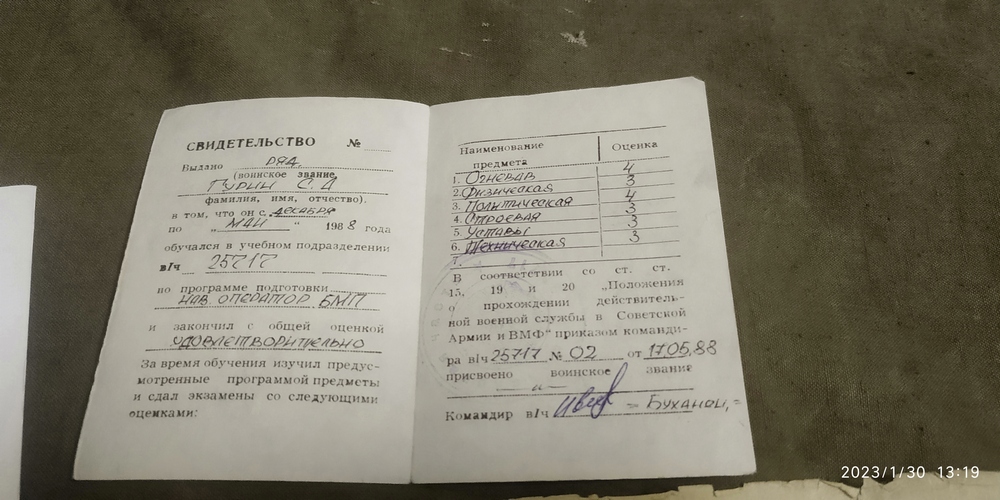 СВИДЕТЕЛЬСТВО №
Выдано РЯД.
(воинское звание,
ГУРИН С.А
фамилия, имя, отчество).
в том, что он с ДЕКАБРЯ
по „ МАЙ “ 1988 года
обучался в учебном подразделении
в/ч 25717
по программе подготовки
НАВ. ОПЕРАТОР БМП
и закончил с общей оценкой
УДОВЛЕТВОРИТЕЛЬНО
За время обучения изучил предус-
мотренные программой предметы
и сдал экзамены со следующими
оценками:
Наименование предмета Оценка
1. Огневая 4
2. Физическая 3
3. Политическая 4
4. Строевая 3
5. Уставы 3
6. Техническая 3
7.
В соответствии со ст. ст.
15, 19 и 20 „Положения
о прохождении действитель-
ной военной службы в Советской
Армии и ВМФ“ приказом команди-
ра в/ч 25717 № 02 от 17.05.88
присвоено воинское звание
Командир в/ч
2023/1/30 13:19